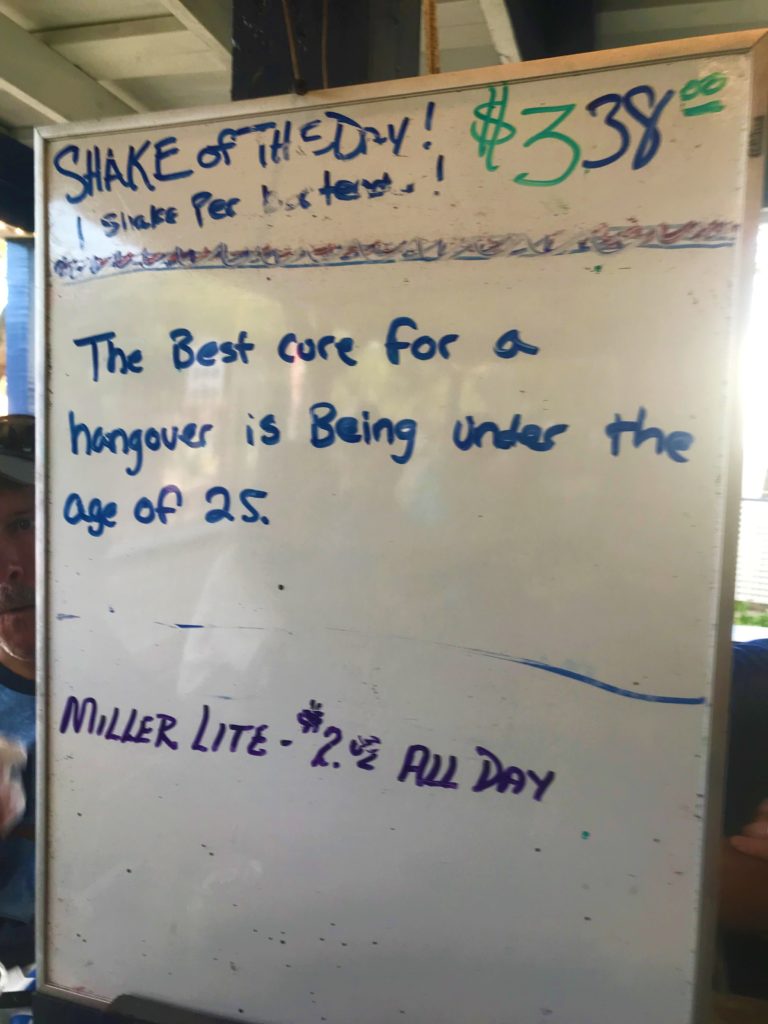 SHAKE of THE DAY! $338.00
1 Shake Per
The Best cure for a
hangover is Being under the
age of 25.
MILLER LITE - $2. ALL DAY